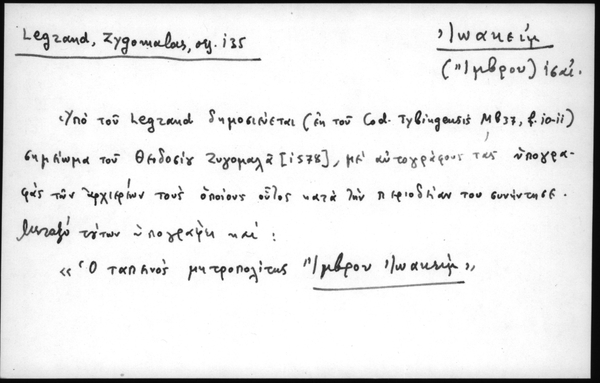 Legrand, Zygomalas, σ. 135
Ἰωακεὶμ
(Ἴμβρου) ις' αἰ.
Ὑπὸ τοῦ Legrand δημοσιεύεται (ἐκ τοῦ Cod. Tybingensis Mb37, f. 10-11)
σημείωμα τοῦ Θεοδοσίου Ζυγομαλᾶ [1578], μὲ αὐτογράφους τὰς ὑπογρα-
φὰς τῶν ἀρχιερέων τοὺς ὁποίους οὗτος κατὰ τὴν περιοδείαν του συνήντησε.
Μεταξὺ τούτων ὑπογράφει καὶ:
«Ὁ ταπεινὸς μητροπολίτης Ἴμβρου Ἰωακεὶμ»